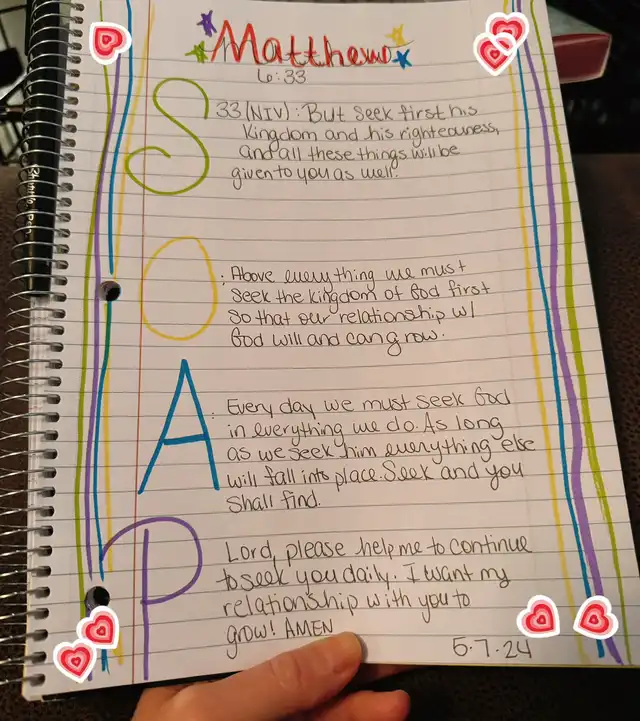 Matthew
6:33
S 33 (NIV): But seek first his
Kingdom and his righteousness,
and all these things will be
given to you as well.
O : Above everything we must
seek the kingdom of God first
so that our relationship w/
God will and can grow.
A : Every day we must seek God
in everything we do. As long
as we seek him everything else
will fall into place. Seek and you
shall find.
P Lord, please help me to continue
to seek you daily. I want my
relationship with you to
grow! AMEN
5.7.24